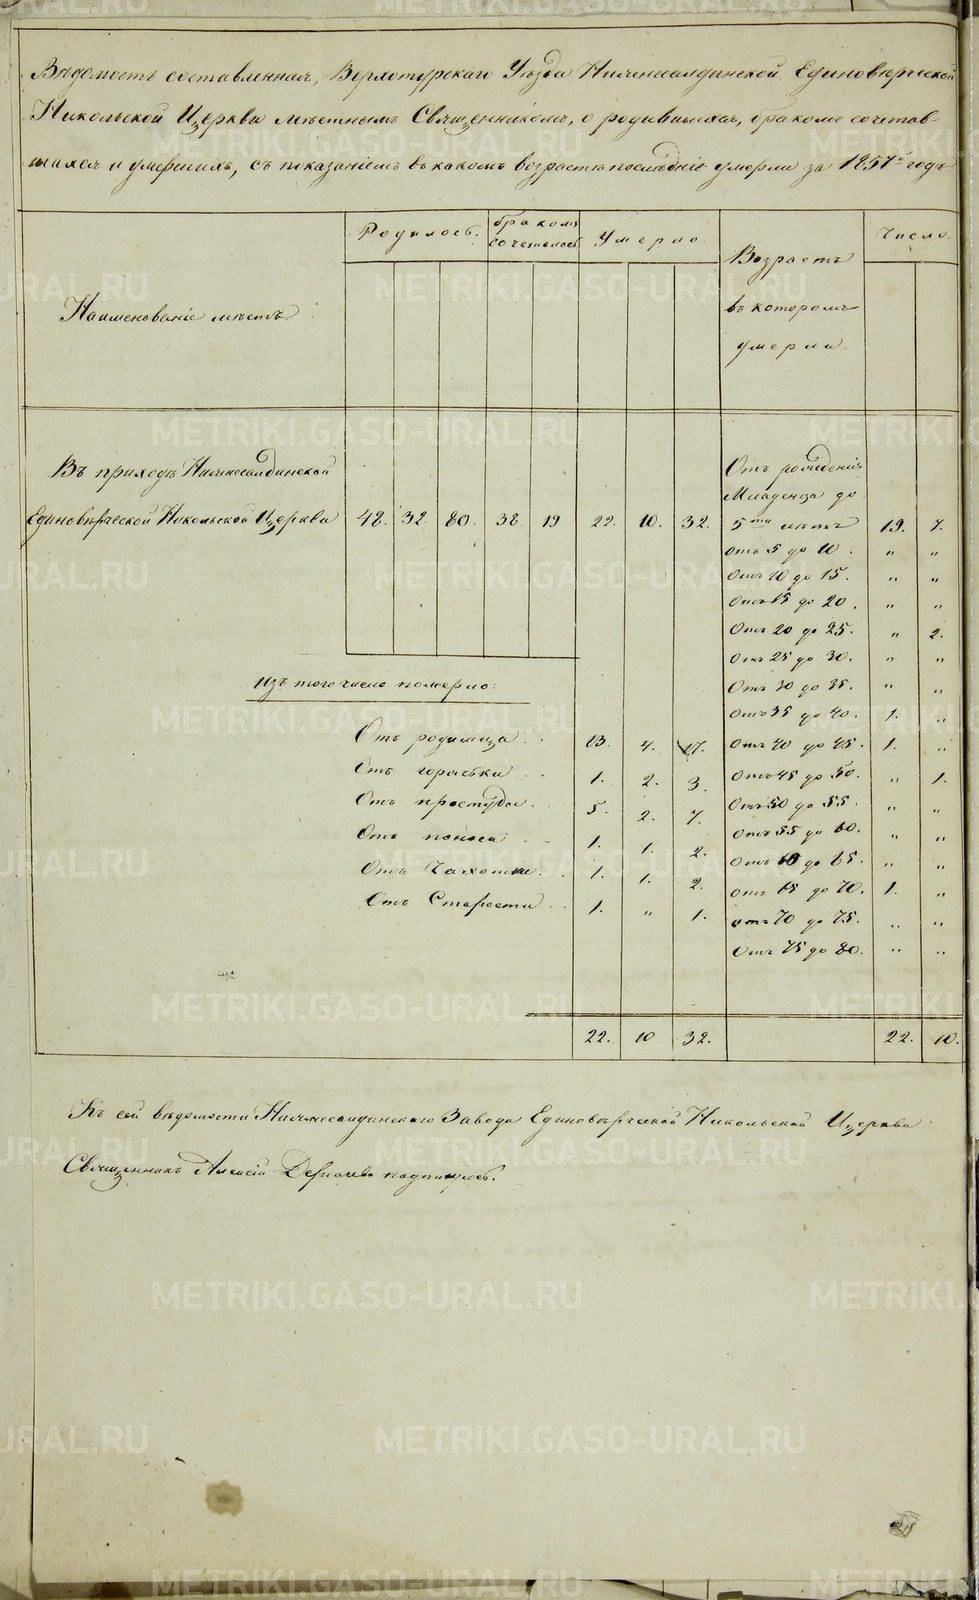 Вѣдомость составленная, Верхотурскаго Уѣзда Нижнесалдинской Единовѣрческой
Никольской Церкви мѣстнымъ Священникомъ, о родившихся, бракомъ сочетав-
шихся и умершихъ, съ показаніемъ въ какомъ возрастѣ послѣдніе умерли за 1857й годъ
Наименованіе мѣстъ
Родилось.
бракомъ сочеталось
Умерло.
Возрастъ
въ которомъ
умерли.
Число.
Въ приходѣ Нижнесалдинской
Единовѣрческой Никольской Церкви 48. 32. 80. 38. 19 22. 10. 32.
Отъ рожденія
Младенца до
5ти лѣтъ 19. 7.
отъ 5 до 10. " "
Отъ 10 до 15. " "
Отъ 15 до 20. " "
Отъ 20 до 25. " 2.
Отъ 25 до 30. " "
Отъ 30 до 35. " "
Отъ 35 до 40. 1. "
Отъ 40 до 45. 1. "
Отъ 45 до 50. " 1.
Отъ 50 до 55. " "
Отъ 55 до 60. " "
Отъ 60 до 65. " "
отъ 65 до 70. 1. "
отъ 70 до 75. " "
Отъ 75 до 80. " "
Изъ того число померло:
Отъ родимца 13. 4. 17.
Отъ горячки 1. 2. 3.
Отъ простуды 5. 2. 7.
Отъ поноса 1. 1. 2.
Отъ Чахотки 1. 1. 2.
Отъ Старости 1. " 1.
22. 10 32. 22. 10.
Къ сей вѣдомости Нижнесалдинскаго Завода Единовѣрческой Никольской Церкви
Священникъ Алексій подписуюсь.
METRIKI.GASO-URAL.RU